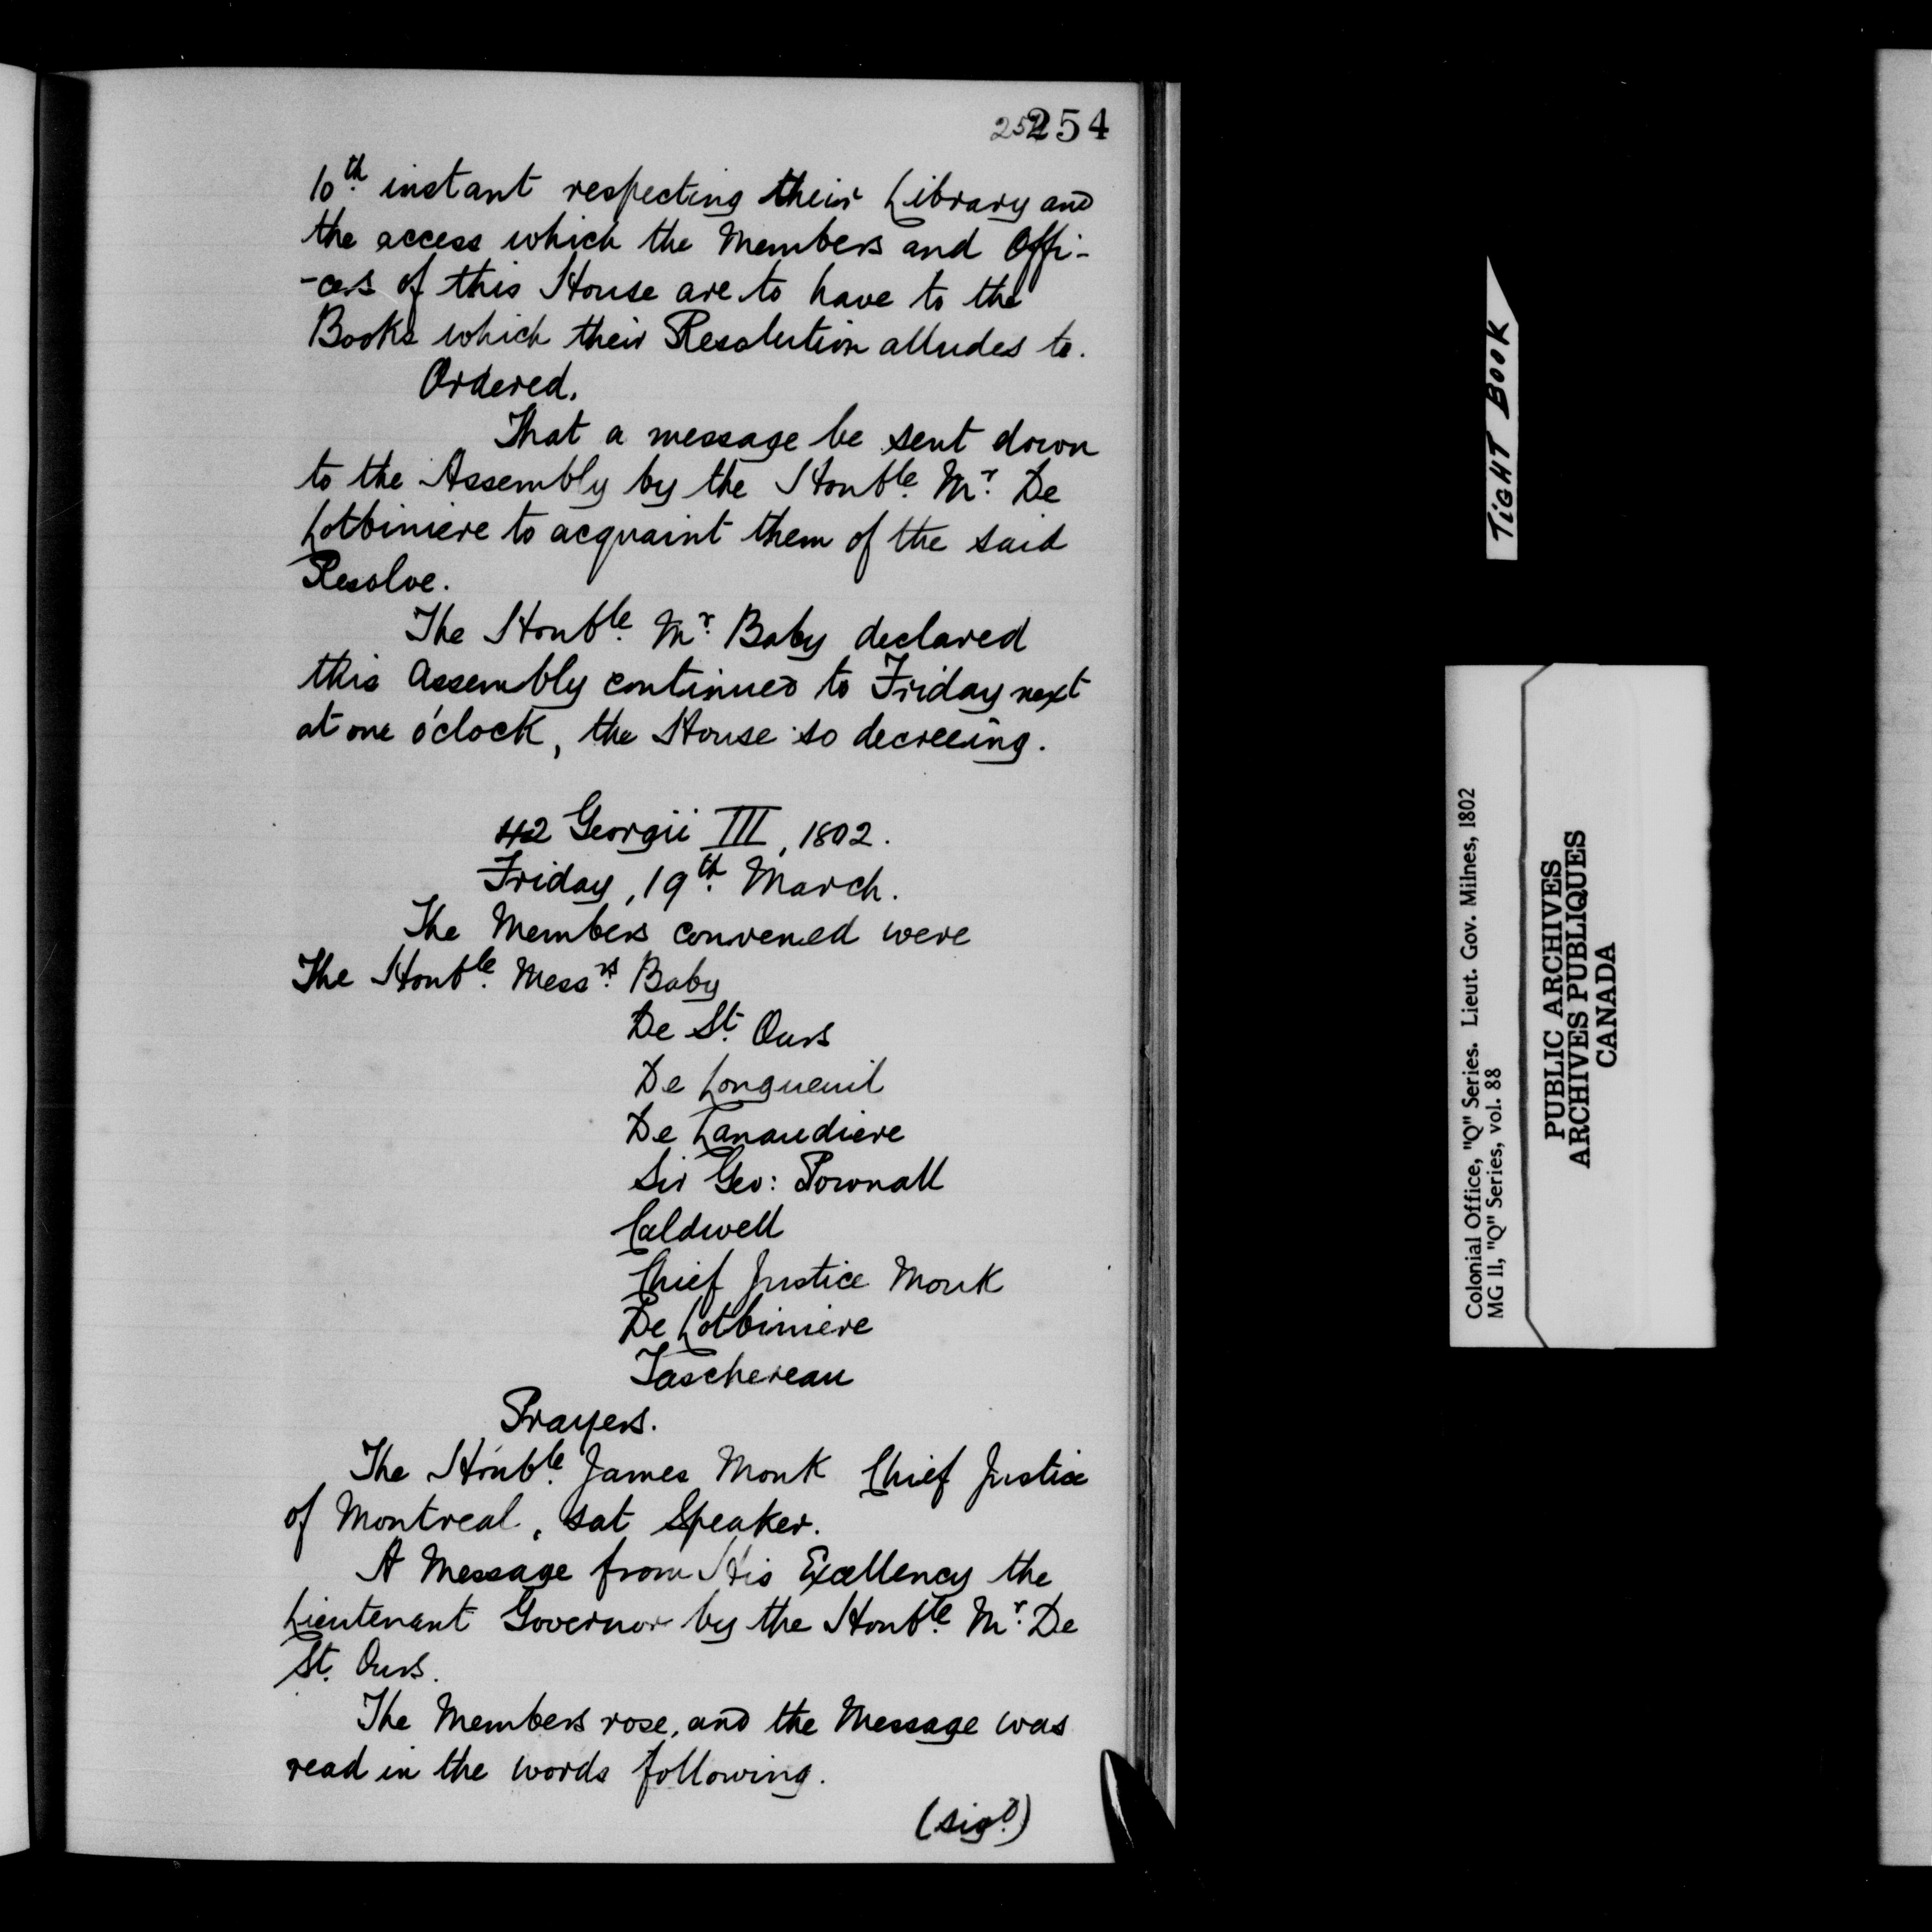 254
10th instant respecting their Library and
the access which the Members and Offi-
-cers of this House are to have to the
Books which their Resolution alludes to.
Ordered,
That a message be sent down
to the Assembly by the Honble Mr. De
Lotbiniere to acquaint them of the said
Resolve.
The Honble Mr. Baby declared
this Assembly continued to Friday next
at one o'clock, the House so decreeing.
42 Georgii III, 1802.
Friday, 19th March.
The Members convened were
The Honble Messrs Baby
De St. Ours
De Longueuil
De Lanaudiere
Sir Geo: Pownall
Caldwell
Chief Justice Monk
De Lotbiniere
Taschereau
Prayers.
The Honble James Monk Chief Justice
of Montreal, sat Speaker.
A Message from His Excellency the
Lieutenant Governor by the Honble Mr. De
St. Ours.
The Members rose, and the Message was
read in the words following.
(sigd)
TIGHT BOOK
Colonial Office, "Q" Series. Lieut. Gov. Milnes, 1802
MG 11, "Q" Series, vol. 88
PUBLIC ARCHIVES
ARCHIVES PUBLIQUES
CANADA